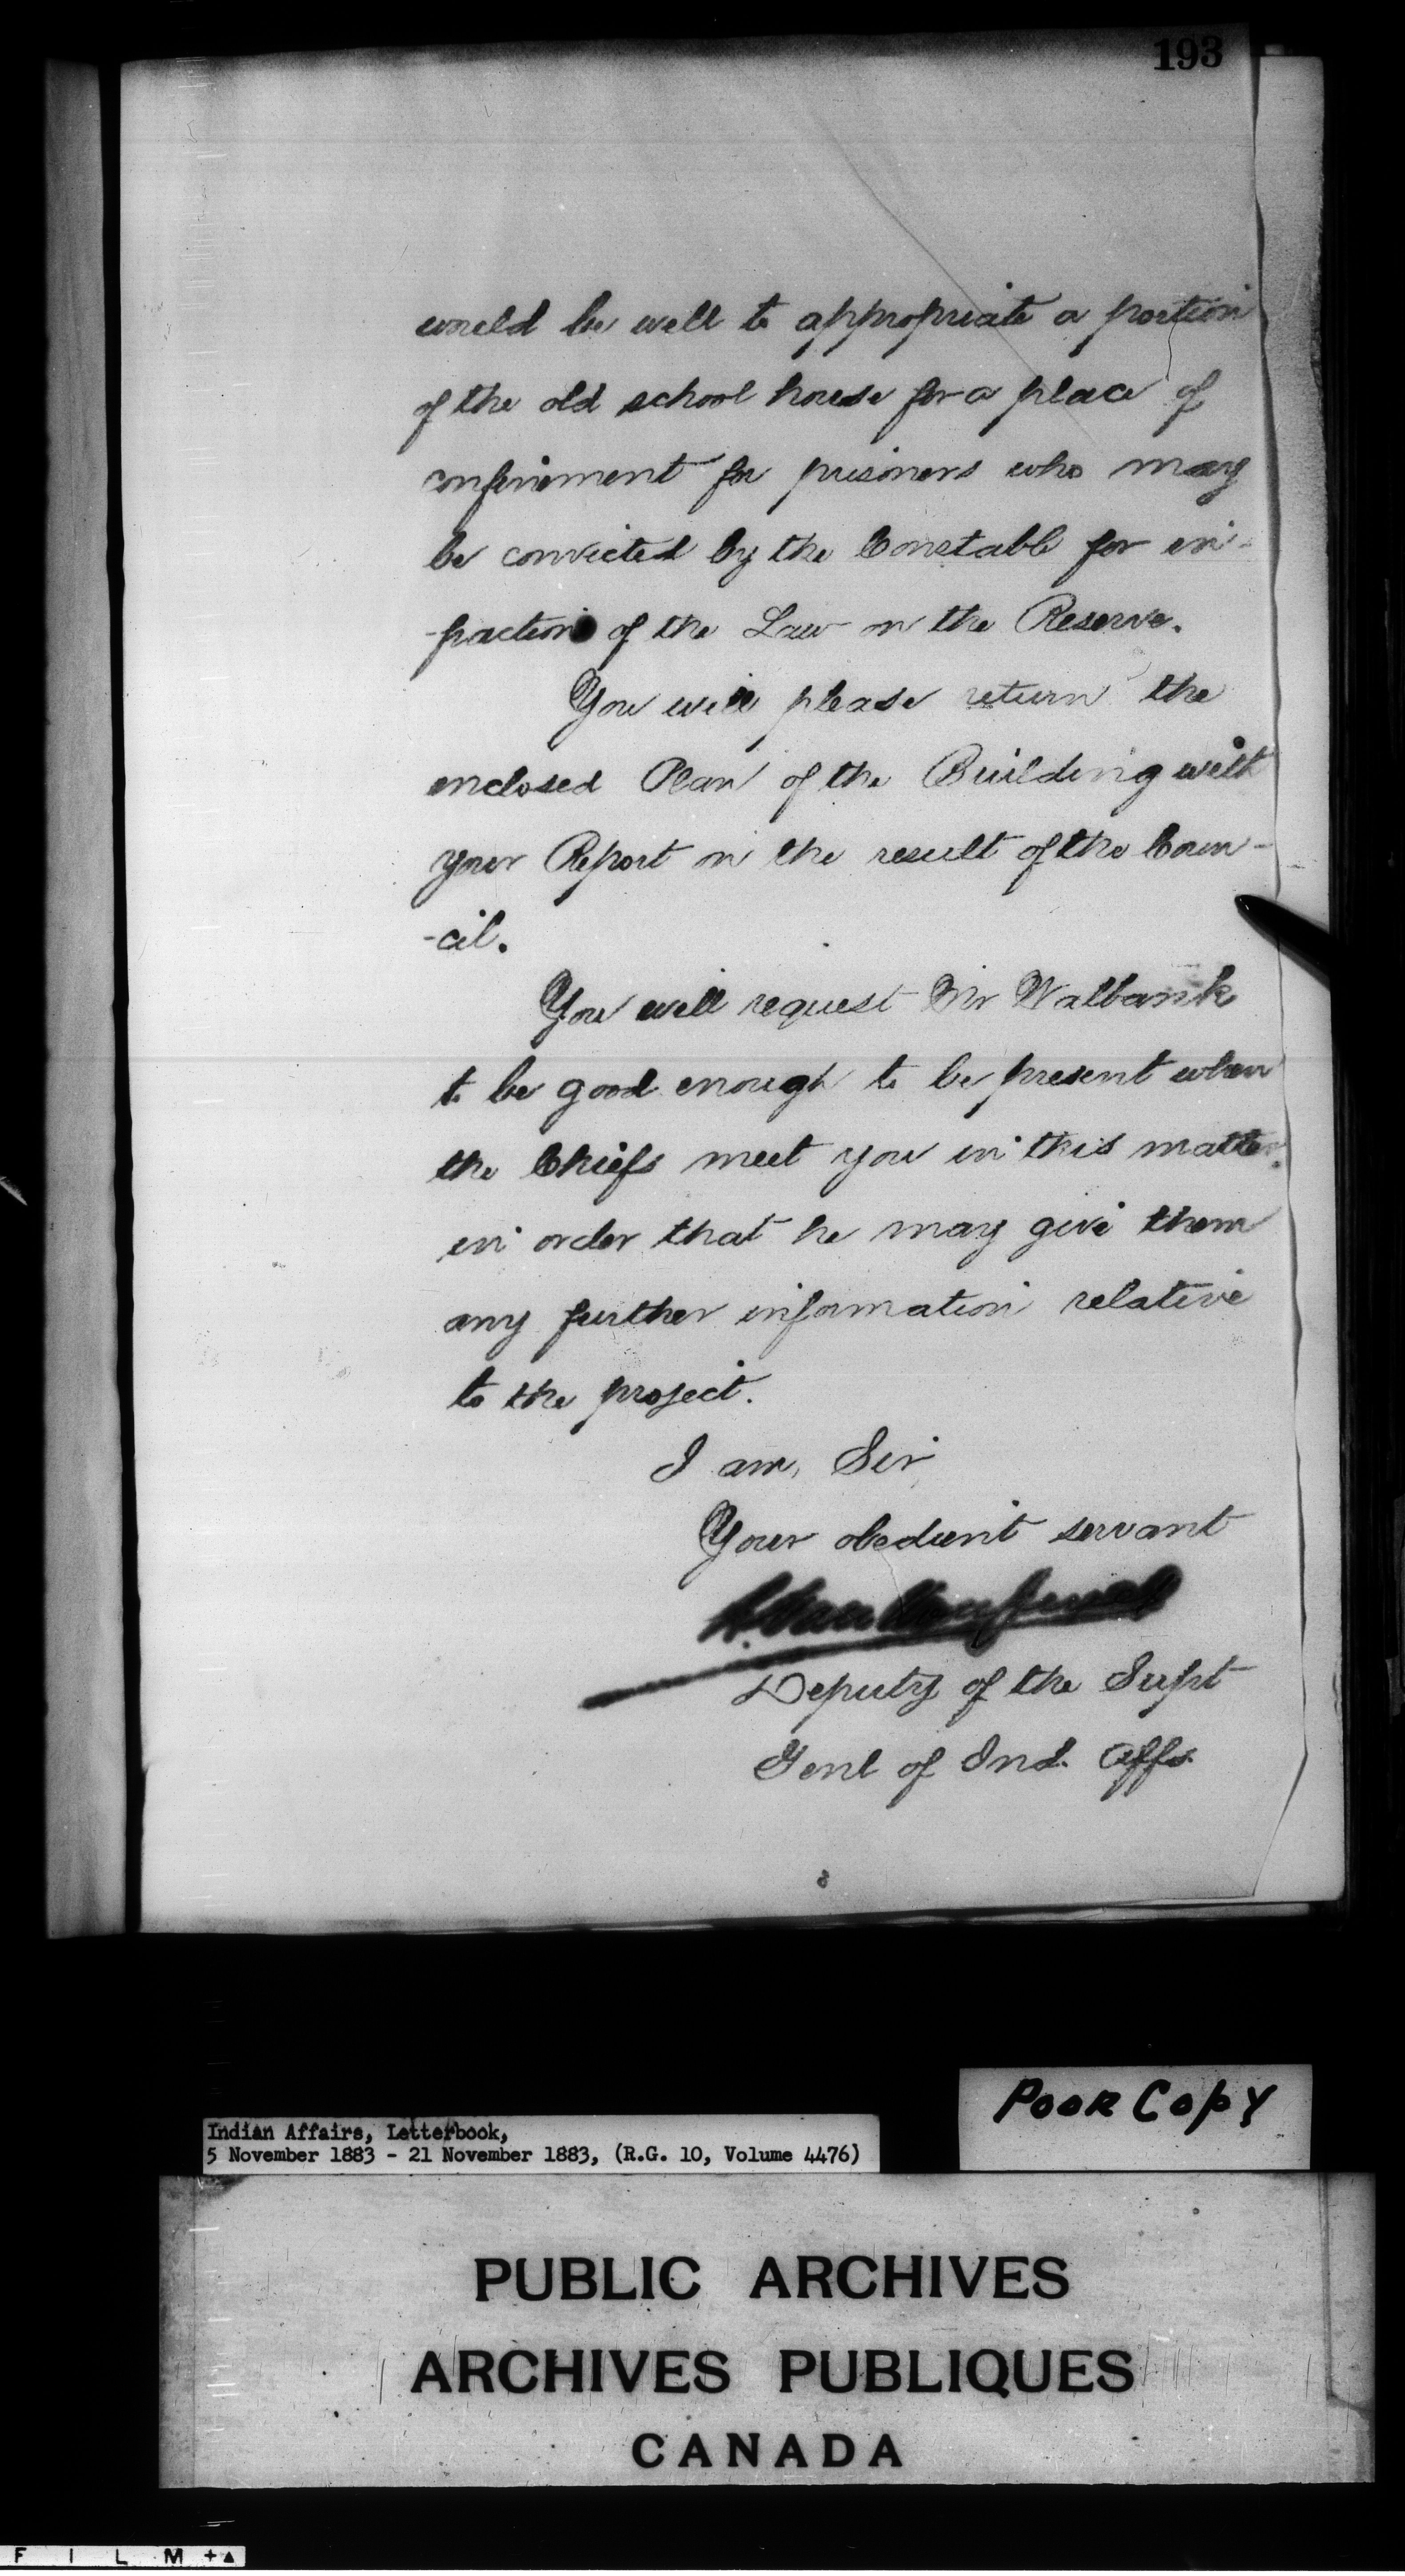 193
would be well to appropriate a portion
of the old school house for a place of
confinement for prisoners who may
be convicted by the Constable for in-
-fraction of the Law on the Reserve.
You will please return the
enclosed Plan of the Building with
your Report on the result of the Coun-
-cil.
You will request Mr Walbank
to be good enough to be present when
the Chiefs meet you in this matter
in order that he may give them
any further information relative
to the project.
I am, Sir
Your obedient servant
Deputy of the Supt
Genl of Ind. Affs.
Poor Copy
Indian Affairs, Letterbook,
5 November 1883 - 21 November 1883, (R.G. 10, Volume 4476)
PUBLIC ARCHIVES
ARCHIVES PUBLIQUES
CANADA
FILM